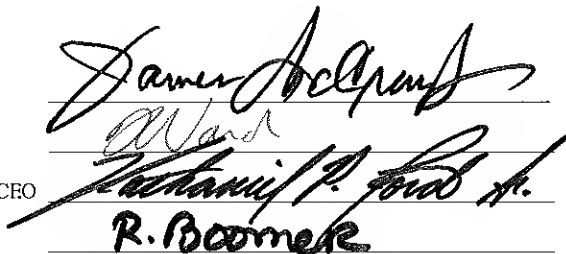 James
Ward
CEO Nathaniel P. Ford Sr.
R. Boomer